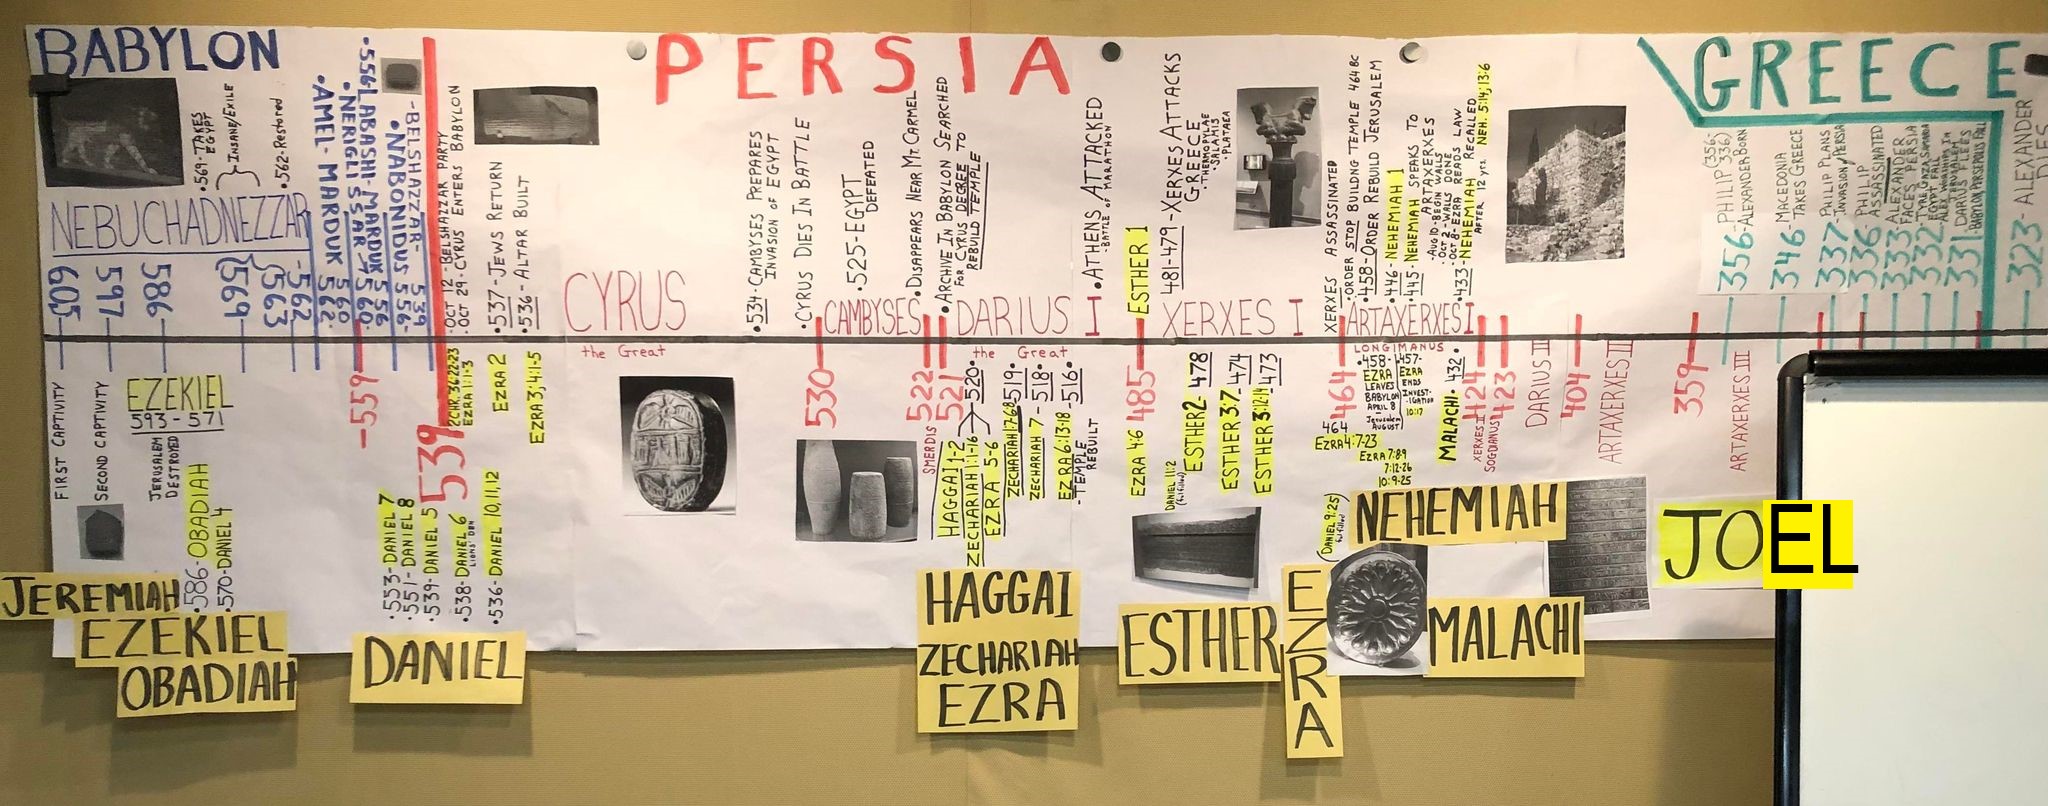 BABYLON
PERSIA
GREECE
•569-TAKES
EGYPT
INSANE/EXILE
•562-Restored
NEBUCHADNEZZAR
605
597
586
569
563
-562
•AMEL-MARDUK 562
560
•NERIGLISSAR 560
•556-LABASHI-MARDUK
556
•NABONIDUS 556-
539
-BELSHAZZAR-
•OCT 12-BELSHAZZAR PARTY
•OCT 29-CYRUS ENTERS BABYLON
•537-JEWS RETURN
•536-ALTAR BUILT
CYRUS
the Great
•534-CAMBYSES PREPARES
INVASION OF EGYPT
•CYRUS DIES IN BATTLE
•525-EGYPT
DEFEATED
CAMBYSES
•DISAPPEARS NEAR MT. CARMEL
•ARCHIVE IN BABYLON SEARCHED
FOR CYRUS DEGREE TO
REBUILD TEMPLE
DARIUS I
the Great
•ATHENS ATTACKED
-BATTLE OF MARATHON
ESTHER 1
481-479-XERXES ATTACKS
GREECE
•THERMOPYLAE
•SALAMIS
•PLATAEA
XERXES I
XERXES ASSASSINATED
•ORDER STOP BUILDING TEMPLE 464 BC
•458-ORDER REBUILD JERUSALEM
•446-NEHEMIAH 1
•445-NEHEMIAH SPEAKS TO
ARTAXERXES
-AUG 10-BEGIN WALLS
-OCT 2-WALLS DONE
-OCT 8-EZRA READS LAW
•433-NEHEMIAH RECALLED
AFTER 12 yrs. NEH. 5:14; 13:6
ARTAXERXES I
LONGIMANUS
356-PHILIP (356-336)
-ALEXANDER BORN
346-MACEDONIA
TAKES GREECE
337-PHILIP PLANS
INVASION PERSIA
336-PHILIP
ASSASSINATED
333-ALEXANDER
FACES PERSIA
332-TYRE, GAZA, SAMARIA
EGYPT FALL
331-DARIUS FLEES
-BABYLON PERSEPOLIS FALL
323-ALEXANDER
DIES
FIRST CAPTIVITY
SECOND CAPTIVITY
EZEKIEL
593-571
JERUSALEM
DESTROYED
•586-OBADIAH
•570-DANIEL 4
-559
539
2 CHR. 36:22-23
EZRA 1:1-3
EZRA 2
EZRA 3, 4:1-5
•553-DANIEL 7
•551-DANIEL 8
•539-DANIEL 5
•538-DANIEL 6
LIONS' DEN
•536-DANIEL 10,11,12
530
522
521
SMERDIS
520
519
518
516
HAGGAI 1-2
ZECHARIAH 1:1-16
EZRA 5-6
ZECHARIAH 1:7-6:8
ZECHARIAH 7
EZRA 6:13-18
-TEMPLE
REBUILT
485
EZRA 4:6
DANIEL 11:2
(fulfilled)
ESTHER 2
478
ESTHER 3:7
474
ESTHER 3:12-14
473
464
464
EZRA 4:7-23
•458-
EZRA
LEAVES
BABYLON
APRIL 8
Jerusalem
August
457-
EZRA
ENDS
INVEST-
IGATION
10:17
EZRA 7:8-9
7:12-26
10:9-25
MALACHI
432
424
423
XERXES II
SOGDIANUS
DARIUS II
404
ARTAXERXES II
359
ARTAXERXES III
(DANIEL 9:25)
fulfilled
JEREMIAH
EZEKIEL
OBADIAH
DANIEL
HAGGAI
ZECHARIAH
EZRA
ESTHER
EZRA
NEHEMIAH
MALACHI
JOEL